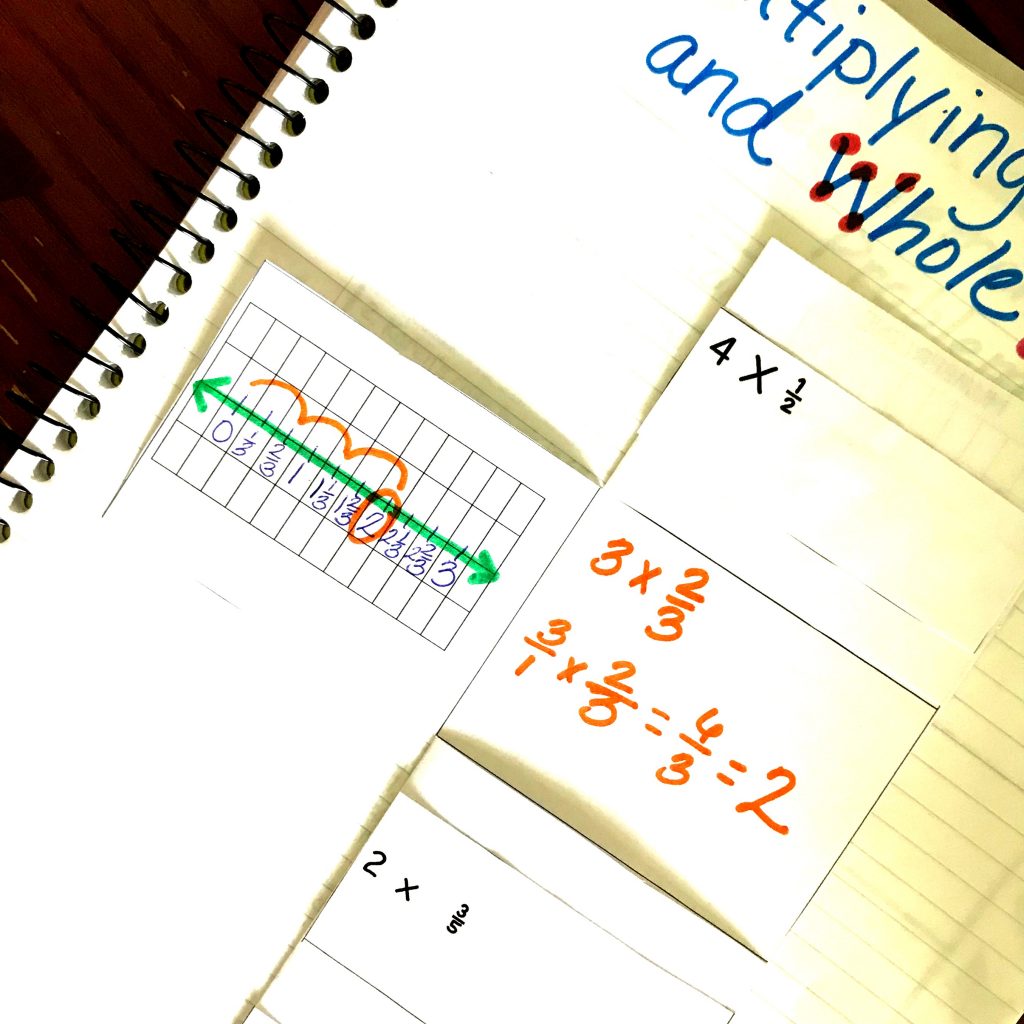 tiplying
and Whole
4 × 1/2
0 1/3 2/3 1 1 1/3 1 2/3 2 2 1/3 2 2/3 3
3 × 2/3
3/1 × 2/3 = 4/3 = 2
2 × 3/5